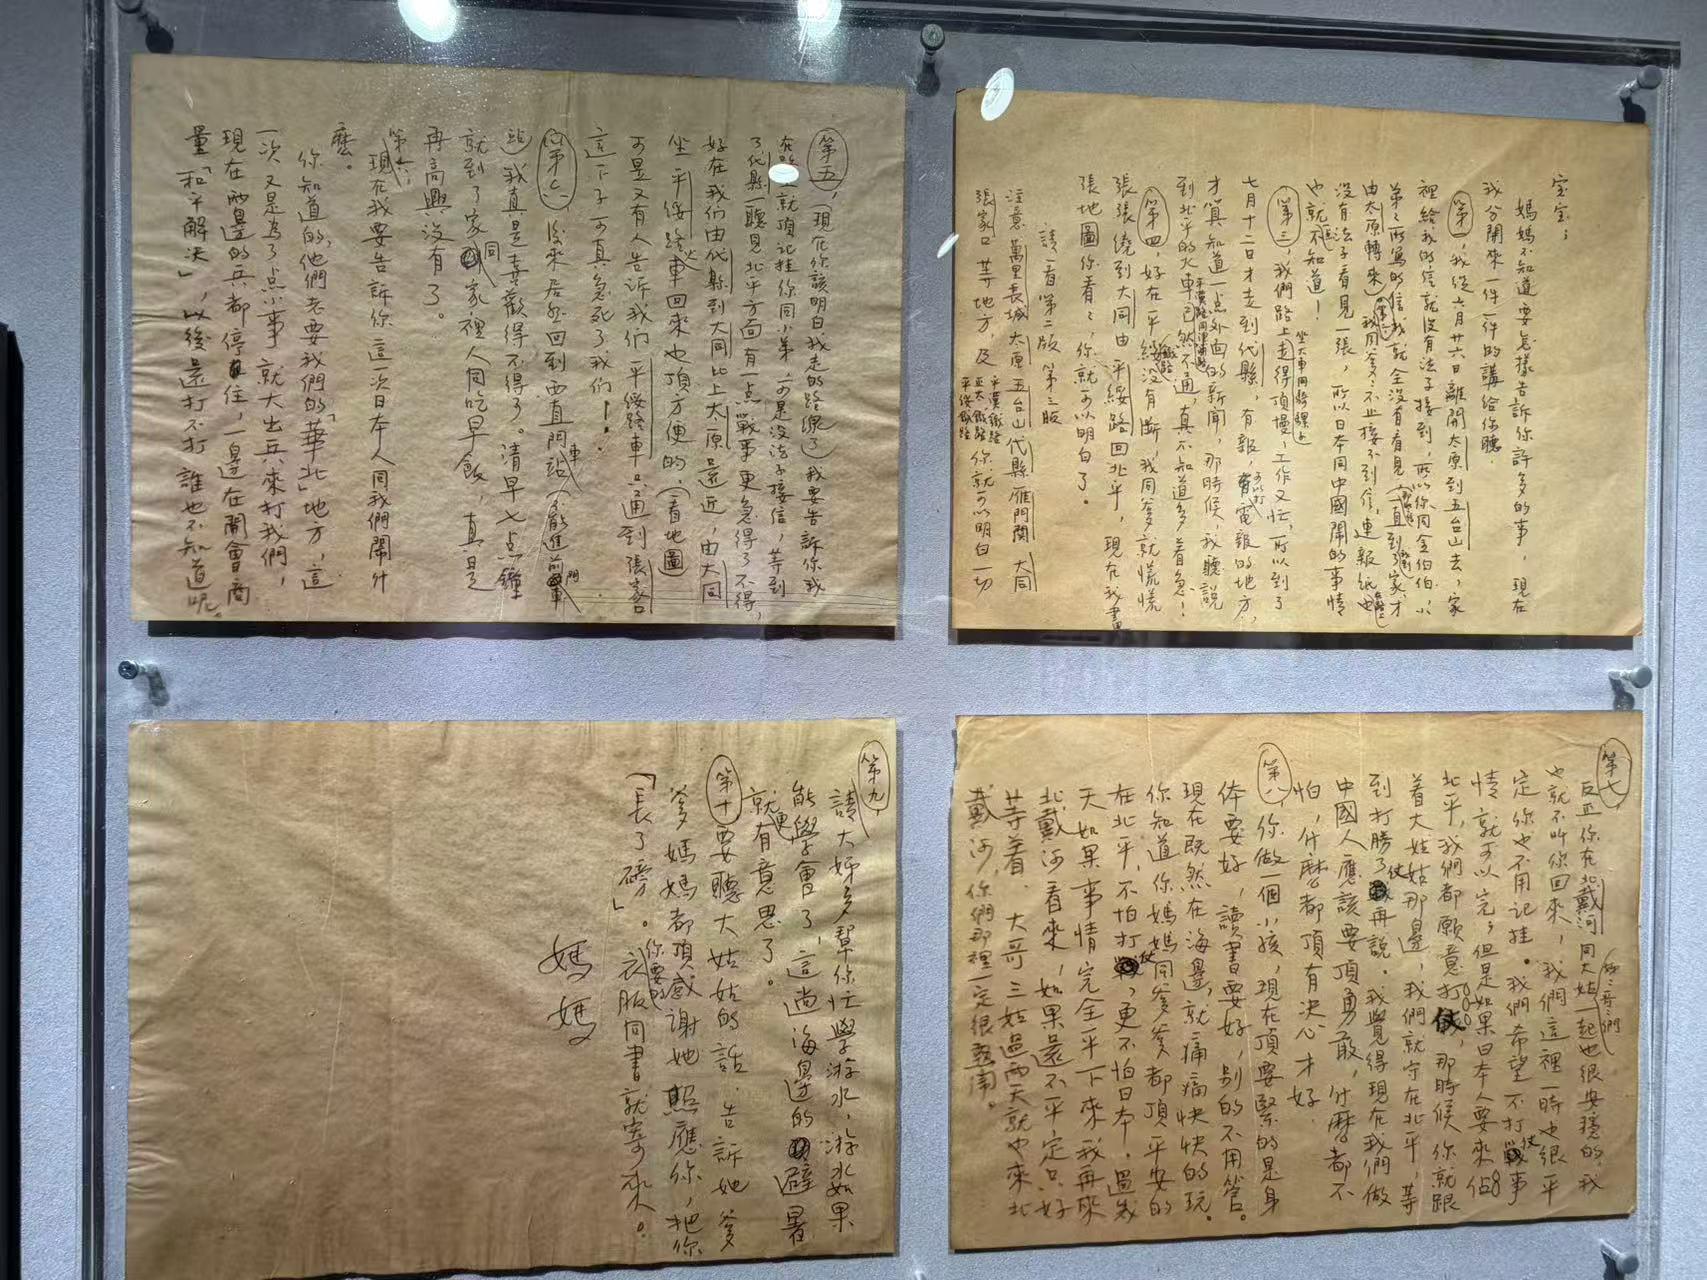 宝宝；
媽媽不知道要怎樣告訴你許多的事，現在
我分開來一件一件的講給你聽．
第一，我從六月廿六日離開太原到五台山去，家
裡給我的信就没有法子接到，所以你同金伯伯，小
弟弟所寫的信我就全没有看見（一直到了家，才
由太原轉來）
第二我同爹爹不止接不到信，連報紙也
没有法子看見一張，所以日本同中國鬧的事情
也就不知道！
第三，我們路上坐大車同騎騾子走得頂慢，工作又忙，所以到了
七月十二日才走到代縣，有報，可以打電報的地方，
才算知道一点外面的新聞，那時候，我聽說
到北平的火車已然不通，真不知道多着急！
第四，好在平綏没有斷，我同爹爹就慌慌
張張繞到大同由平綏路回北平，現在我畫
張地圖你看看，你就可以明白了。
請看第二版 第三版
注意萬里長城 太原 五台山 代縣 雁門關 大同
張家口等地方，及平漢鐵路 正太鐵路 平綏鐵路 你就可以明白一切
第五，（現在你該明白我走的路線了）我要告訴你我
在路上就頂記挂你同小弟，可是没法子接信，等到
了代縣一聽見北平方面有一点戰事更急得了不得，
好在我們由代縣到大同比上太原還近，由大同
坐平綏路火車回來也頂方便的，（看地圖
可是又有人告訴我們平綏路車只通到張家口
這下子可真急死了我們！
後來居然回到西直門車站（不能進前門車
站）我真是喜歡得不得了。清早七点鐘
就到了家，同家裡人同吃早飯，真是
再高興没有了。
第六，現在我要告訴你這一次日本人同我們鬧什
麼。
你知道的，他們老要我們的「華北」地方，這
一次又是為了点小事就大出兵來打我們，
現在兩邊的兵都停住，一邊在開會商
量「和平解決」，以後還打不打誰也不知道呢。
第七，
反正你在北戴河同大姑一起也很安穩的，我
也就不叫你回來，我們這裡一時也很平
定，你也不用記挂。我們希望不打仗事
情就可以完，但是如果日本人要來佔
北平，我們都願意打仗，那時候你就跟
着大姑姑那邊，我們就守在北平，等
到打勝了仗再說。我覺得現在我們做
中國人應該要頂勇敢，什麼都不
怕，什麼都頂有決心才好．
第八，你做一個小孩，現在頂要緊的是身
体要好，讀書要好，别的不用管。
現在既然在海邊，就痛痛快快的玩。
你知道你媽媽同爹爹都頂平安的
在北平，不怕打仗，更不怕日本．過幾
天如果事情完全平下來，我再來
北戴河看來，如果還不平定只好
等着．大哥三姑過兩天就也來北
戴河，你們那裡一定很熱鬧。
第九，
請大姊多幫你忙學游水，游水如果
能學會了，這尚海邊的避暑
就更有意思了。
第十要聽大姑姑的話．告訴她爹
爹媽媽都頂感謝她照應你，把你
「長了磅」。你要的衣服同書就寄來。
媽媽